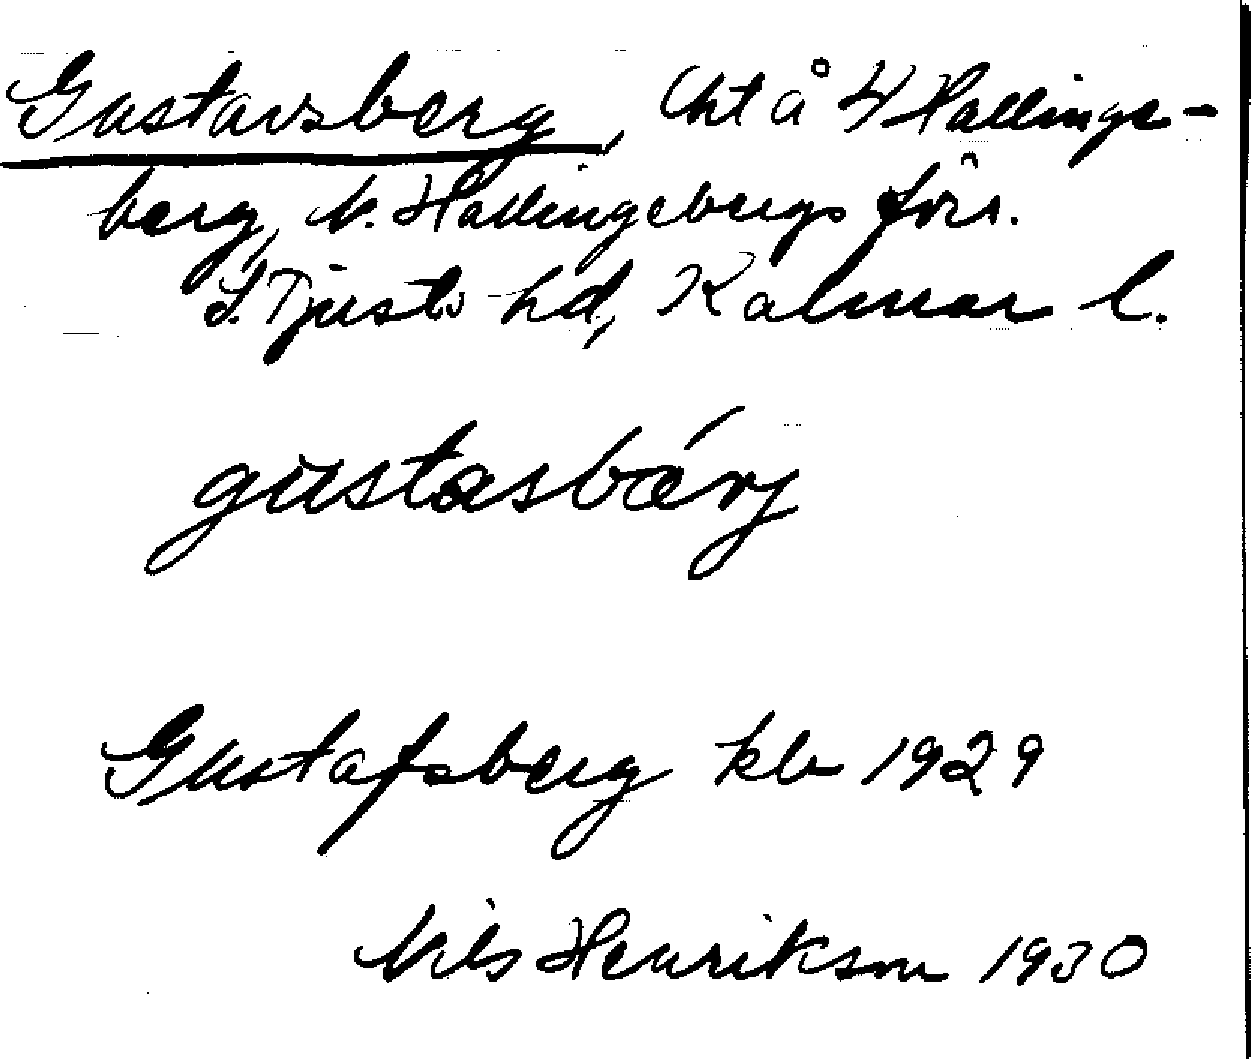 Gustavsberg, lht å V Hallinge-
berg, V. Hallingebergs förs.
S. Tjusts hd, Kalmar l.
gustasbærj
Gustafsberg klb 1929
Nils Henrikson 1930